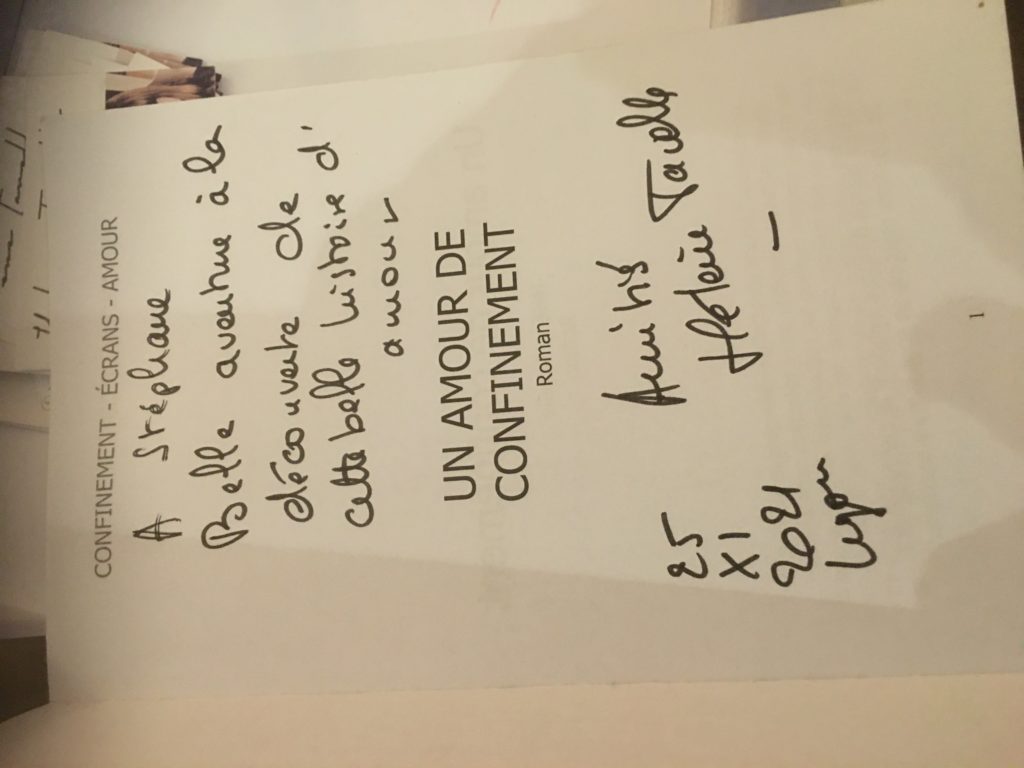 CONFINEMENT - ÉCRANS - AMOUR
A Stéphane
Belle aventure à la
découverte de
cette belle histoire d'
amour
UN AMOUR DE
CONFINEMENT
Roman
Amitiés
25
XI
2021
Lyon
1